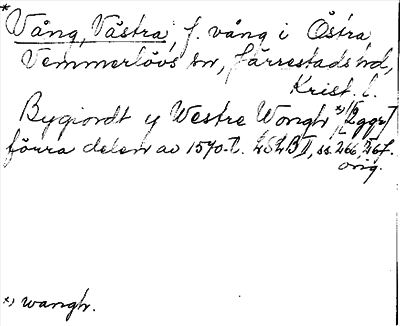 * Vång, Västra, f. vång i Östra
Vemmerlövs sn, Järrestads hd,
Krist. l.
Bygiordt y Westre Wongh x) [2 ggr]
förra delen av 1570-t. LSLB II, ss. 266, 267.
orig.
x) wangh.